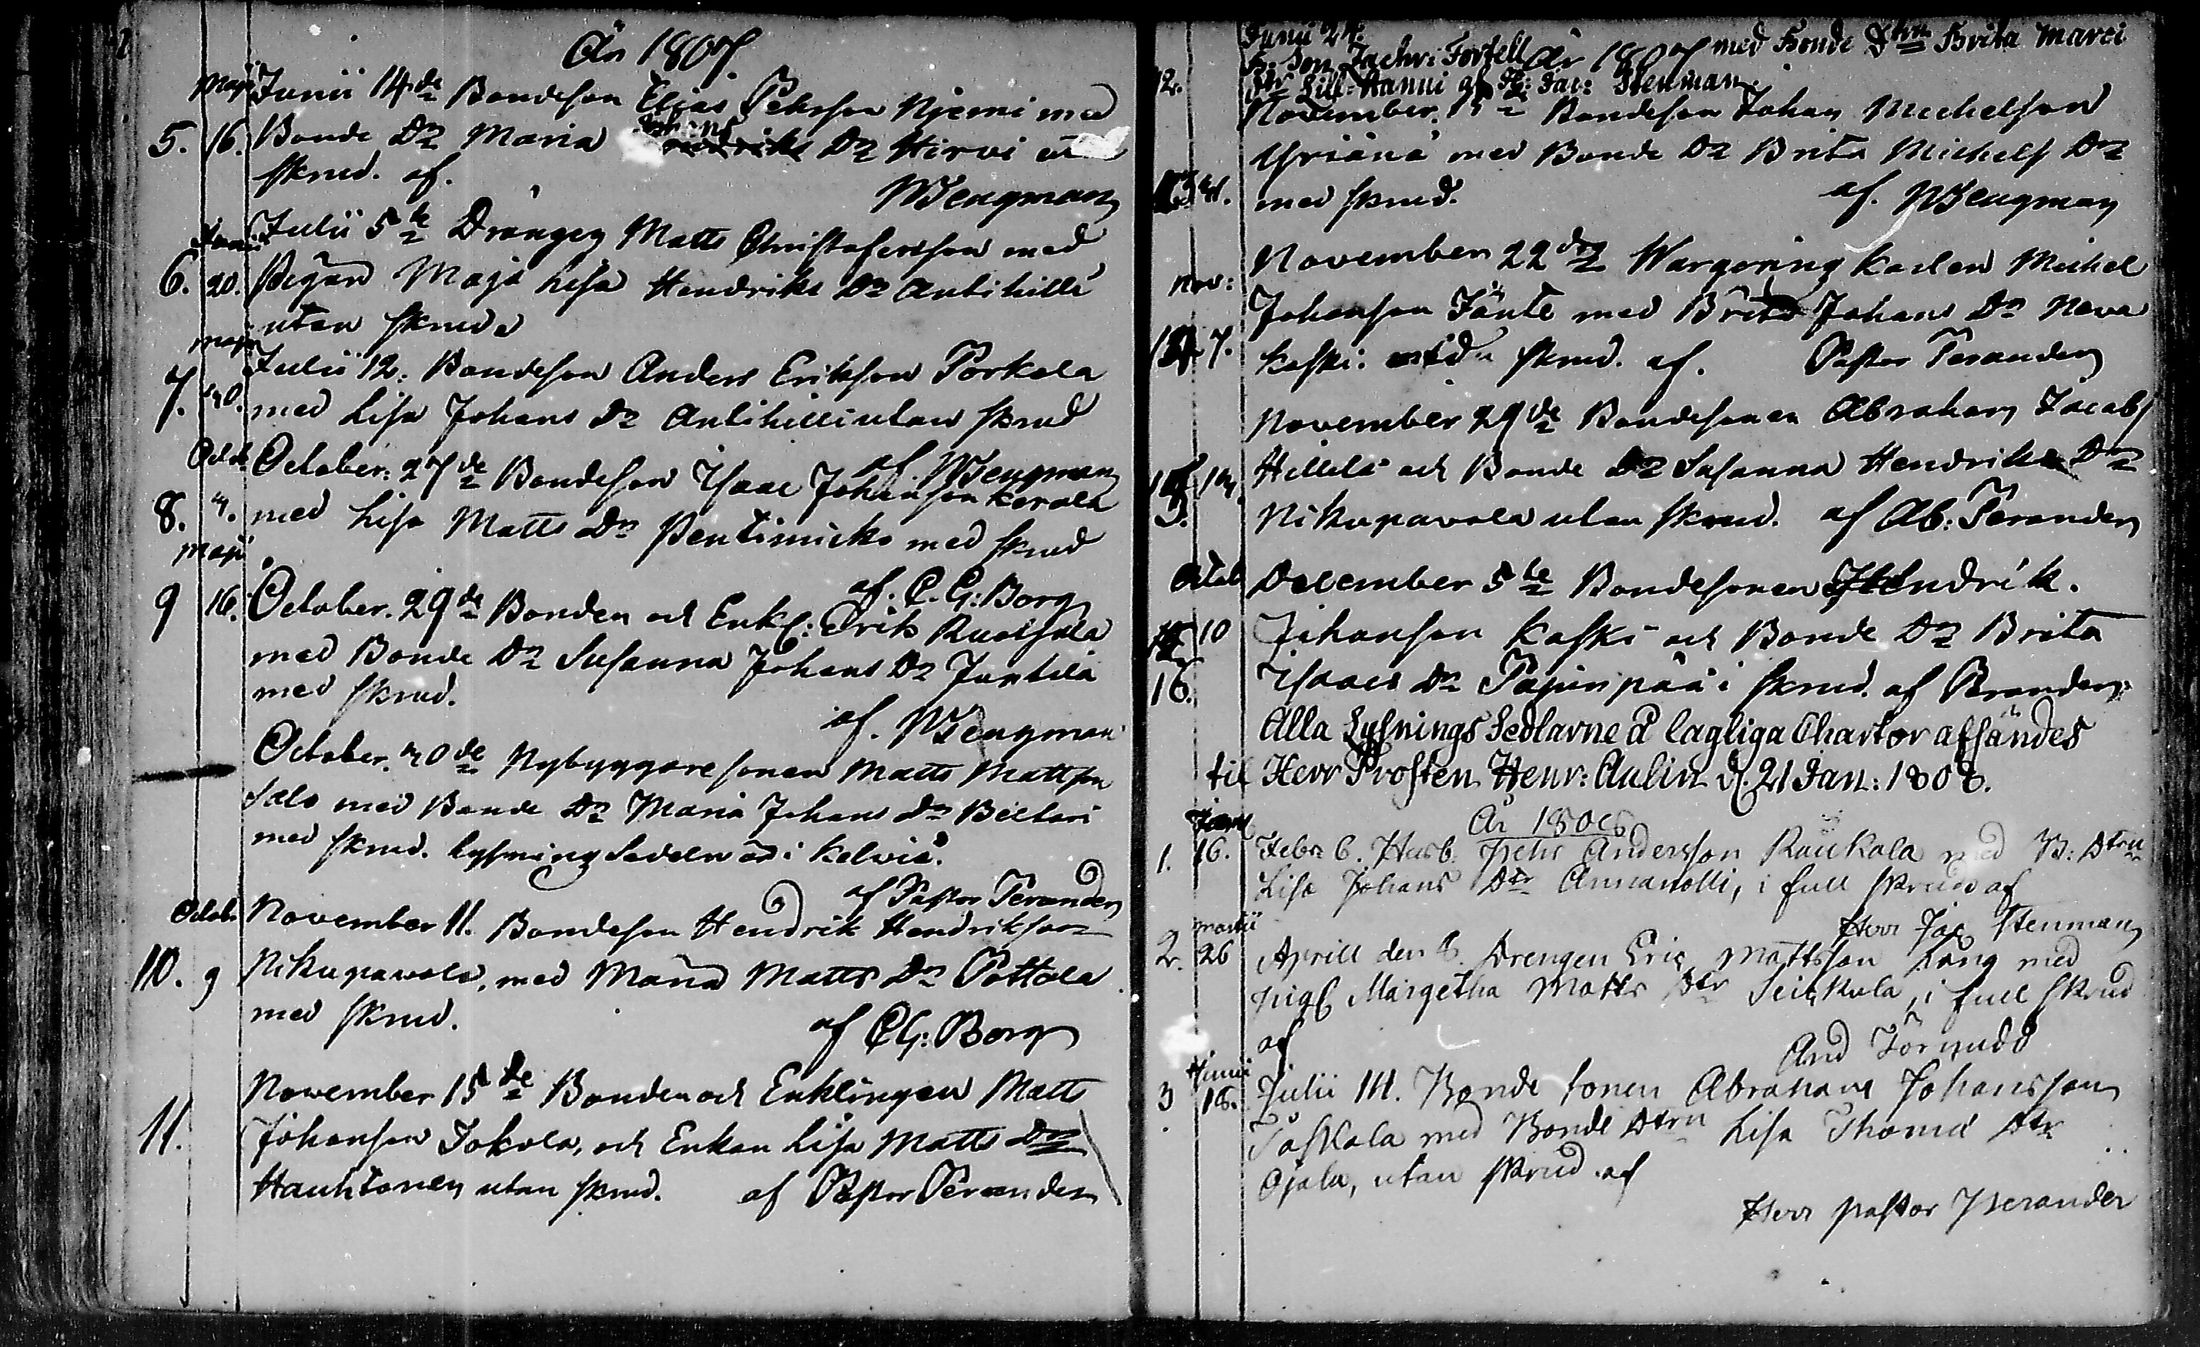 År 1807.
Maji Junii 14de Bondeson Elias Pehrsson Njemi med
5. 16. Bonde Dr Maria Johans Hendriks Dr Hirvi utan
skrud. af. Wengman
Junii Julii 5te Drängen Matts Christofersson med
6. 20. Pigan Maja Lisa Hendriks Dr Antihilli
utan skrud
Maji Julii 12. Bondeson Anders Eriksson Porkala
7. med Lisa Johans Dr Antihilli utan skrud
af. Wengman
Octob. October. 27de Bondeson Isaac Johansson Kerola
8. 4. med Lisa Matts Dr Pentimicko med skrud
af. C. G: Borg
Maji
9 16. October. 29de Bonden och Enkl: Erik Ruotsala
med Bonde Dr Susanna Johans Dr Juntila
med skrud.
af. Wengman
October. 30de Nybyggare sonen Matts Mattson
Salo med Bonde Dr Maria Johans Dr Beltari
med skrud. lysning Sedeln är i Kelviå.
af Pastor Perander
Octob. November 11. Bondeson Hendrik Hendriksson
10. 9 Nikupavola, med Maria Matts Dr Pottala
med skrud.
af CG: Borg
November 15de Bonden och Enklingen Matts
11. Johansson Jokela, och Enkan Lisa Matts Dr
Hauhtonen utan skrud. af Pastor Perander
Junii 24.
B: Son Zachr: Forsell År 1807 med Bonde Dtrn Brita Marci
12. Dtr Lill-Hanni af H: Jac: Stenman
November. 15de Bondeson Johan Michelson
Yriänä med Bonde Dr Brita Michels Dr
13 4. med skrud. af. Wengman
November 22dra Wargering Karlen Michel
Nov: Johansson Jänte med Brita Johans Dr Neva
14 7. Koski: utan skrud. af. Pastor Perander
November 29de Bondesonen Abraham Jacobs
15. 14 Hillilä och Bonde Dr Susanna Hendriks Dr
Nikupavola utan skrud. af Ab: Perander
Octob December 5te Bondesonen Hendrik.
10 Johansson Koski och Bonde Dr Brita
16. Isaacs Dr Pajunpää i skrud. af Perander.
Alla Lysnings Sedlarne å lagliga Chartor afsändes
til Herr Prosten Henr: Aulin d. 21 Jan: 1808.
År 1808
Jan
1. 16. Febr 6. Husb. Pehr Andersson Räukala med B: Dtrn
Lisa Johans Dtr Annanolli, i full skrud af
Herr Jac Stenman
Martii
2. 26 Aprill den 8. Drengen Eric Mattsson Lång med
pig. Margetha Matts Dtr Seikkala, i full skrud
af
And Törnudd
Junii
3 18. Julii 14. Bonde sonen Abraham Johansson
Paskala med Bonde Dtrn Lisa Thomæ Dtr
Ojala, utan skrud af
Herr pastor Perander